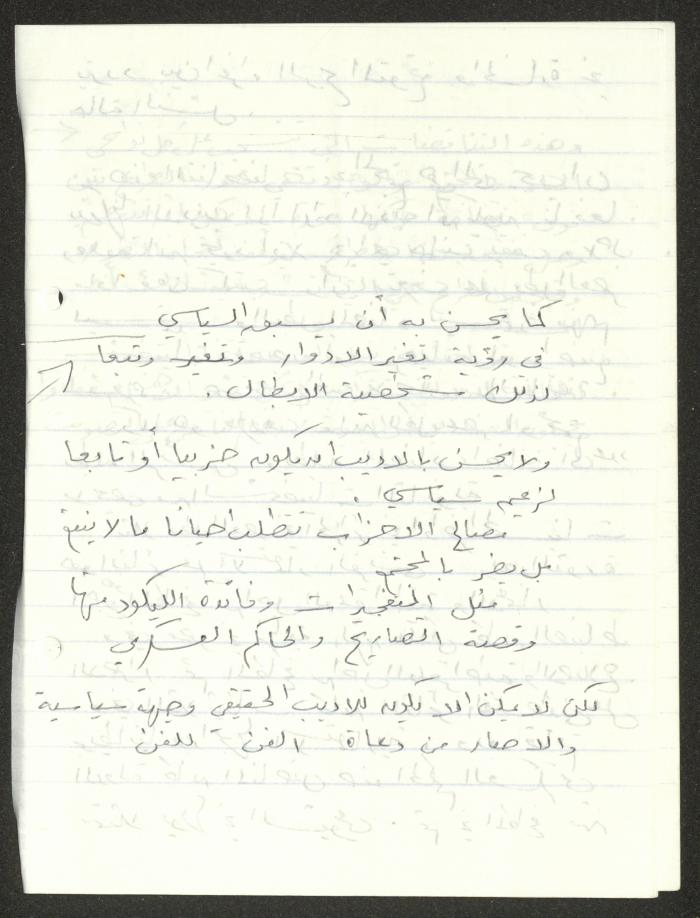 كما يحسن به أن يسبق السياسي
في رؤية تغير الادوار وتغير وتبعا
لذلك شخصية الابطال .
ولا يحسن بالاديب ان يكون حزبيا أو تابعا
لزعيم سياسي .
مصالح الاحزاب تتطلب احيانا ما لا ينفع
بل يضر بالمجتمع
مثل المتفجرات وفائدة الليكود منها
وقصة التصاريح والحاكم العسكري
لكن لا يمكن الا يكون للاديب الحقيقي وجهة سياسية
والا صار من دعاة الفن للفن